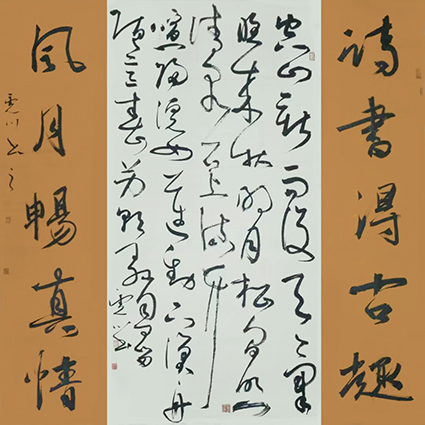 詩書得古趣
空山新雨後天氣
晚來秋明月松間照
清泉石上流竹
喧歸浣女蓮動下漁舟
隨意春芳歇王孫自可留
風月暢真情